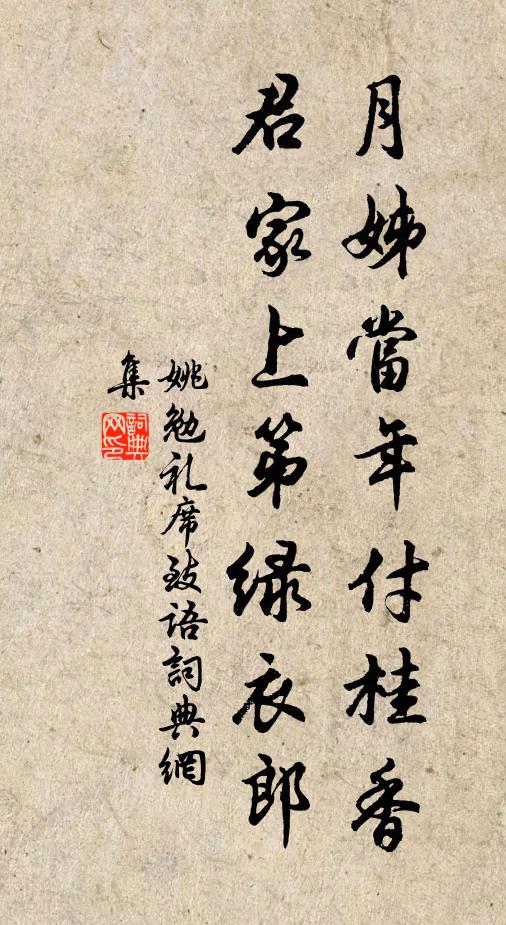 月姊當年付桂香
君家上第绿衣郎
姚勉礼席致语詞典網
集
詞典网印